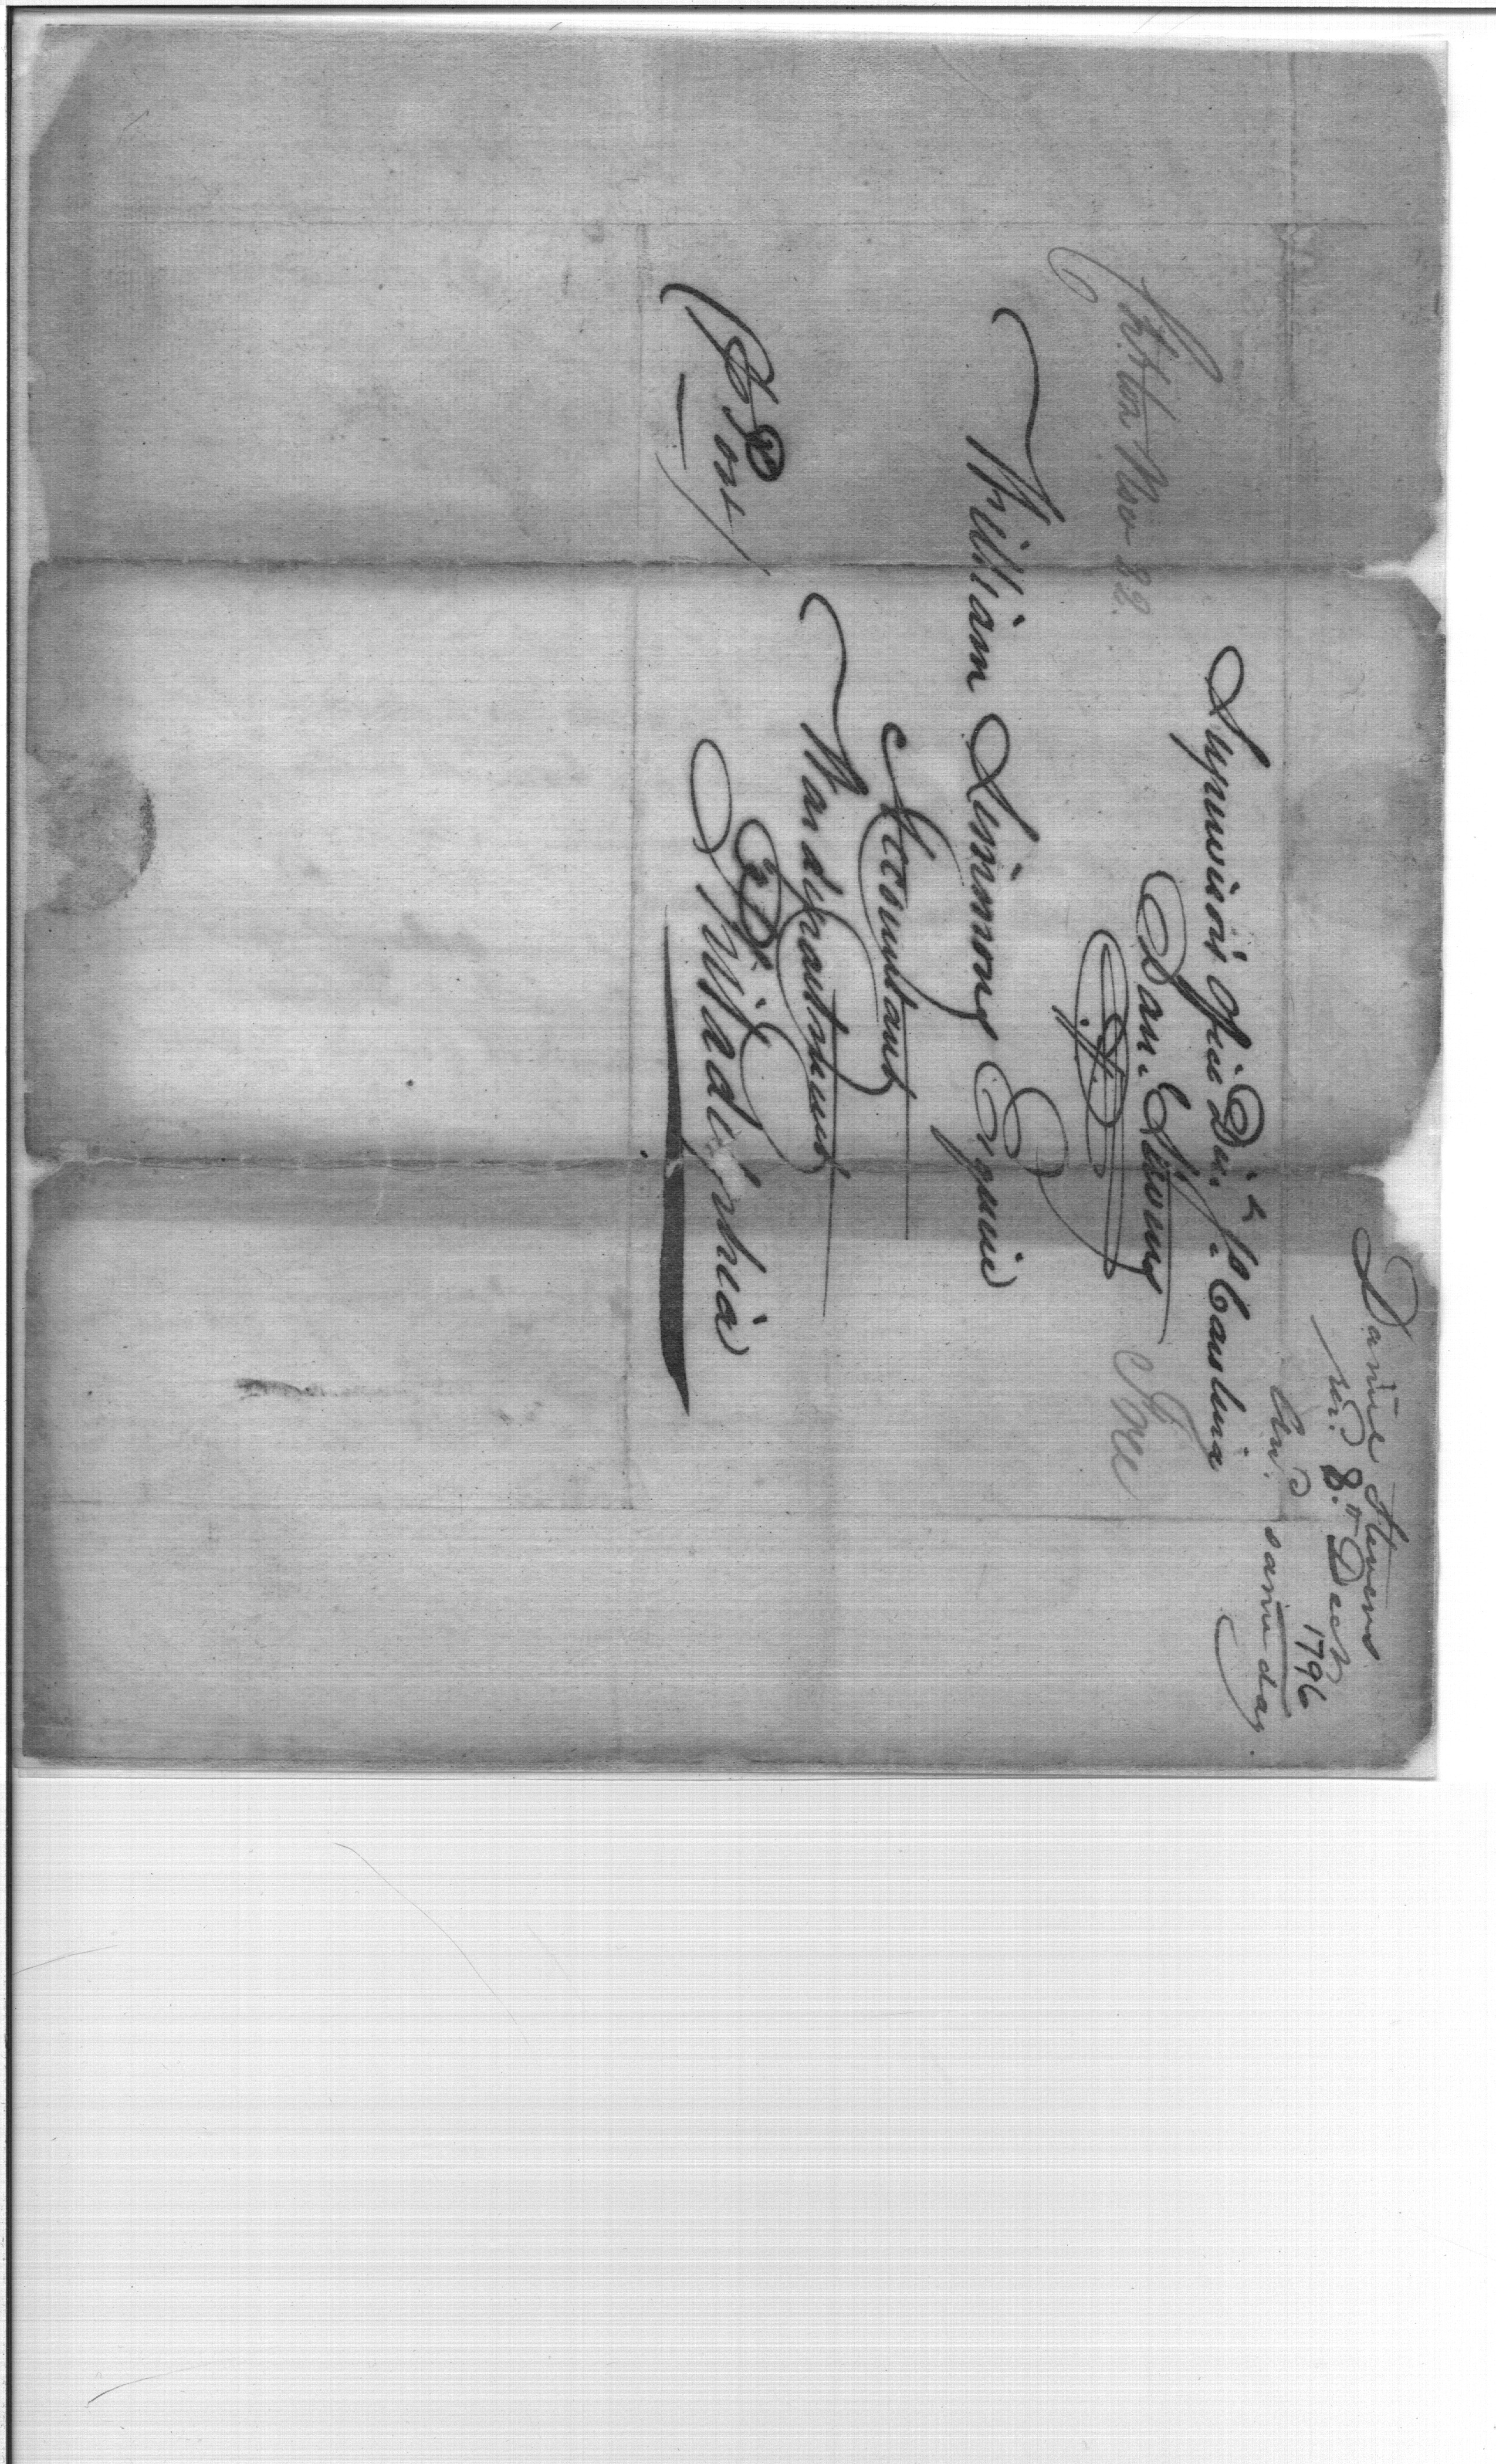 Daniel Stevens
rec.d 8.th Decr
1796
Ans.d same day
Supervisors office Dis.t So. Carolina
Dan. Stevens
Free
Ch:ston Nov 22.
William Simmons Esquire
Accountant
War department
Philadelphia
(Post)